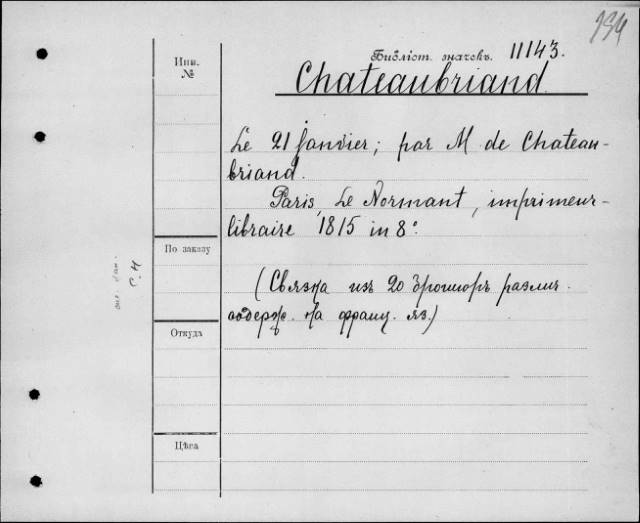 194
Инв.
№
Библіот. значекъ. 11143.
Chateaubriand
Le 21 janvier; par M de Chateau-
briand.
Paris, Le Normant, imprimeur-
libraire 1815 in 8º.
По заказу
(Связка изъ 20 брошюръ различ.
содерж. на франц. яз.)
Откуда
Цѣна